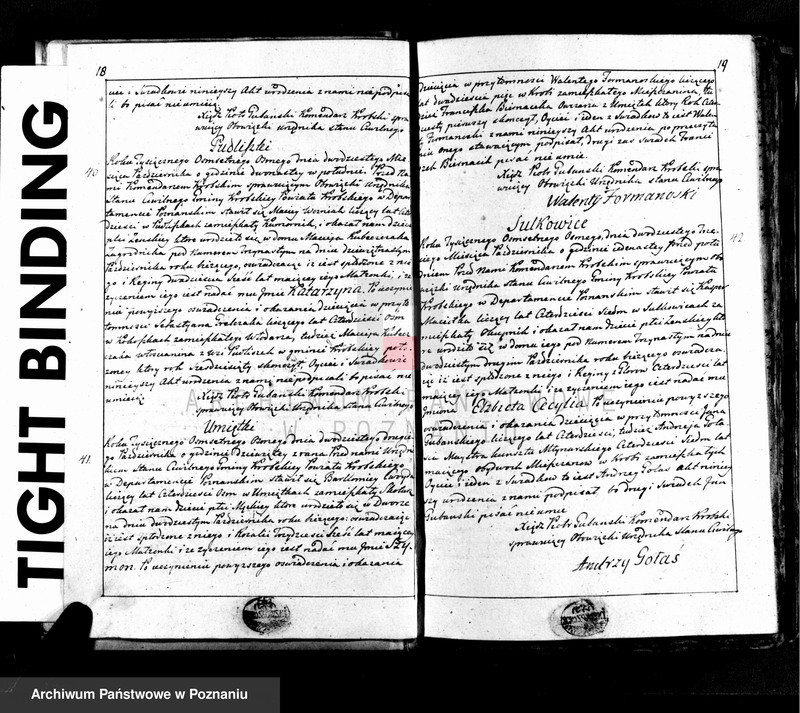 18
cie i Swiadkowie ninieyszy Akt urodzenia z nami niepodpisa-
li bo pisać nieumieią.
Xiądz Piotr Gubański Komendarz Krobski spra-
wuiący Obowiązki Urzędnika stanu Cywilnego
Pudliszki
40.
Roku Tysiącznego Osmsetnego Osmego dnia dwudziestego Mie-
siąca Października o godzinie dwunastey w południe. Przed Na-
mi Komendarzem Krobskim sprawuiącym Obowiązki Urzędnika
Stanu Cywilnego Gminy Krobskiey Powiatu Krobskiego w Depar-
tamencie Poznańskim stawił się Maciey Woźniak liczący lat
dzieści w Pudliszkach zamieszkały Komornik, i okazał nam dziecie
płci Zenskiey ktore urodziło się w domu Macieja
Zagrodnika pod Numerem Trzynastym na dniu dziewiętnastym
Października roku bieżącego, oświadczaiąc iż iest spłodzone z nie-
go i Reginy dwadzieścia Sześć lat maiącey iego Małżonki, i że
życzeniem iego iest nadać mu Jmie Katarzyna. Po uczynie-
niu powyższego oswiadczenia i okazania dziecięcia w przyto-
mności Sebastyana liczącego lat Czterdzieści Osm
w zamieszkałego Włodarza, tudzież Macieja
włoscianina z Wsi Pudliszek w gminie Krobskiey poło-
żoney ktory rok Sześdziesiąty skończył, Oyciec i Swiadkowie
ninieyszy Akt urodzenia z nami niepodpisali bo pisać nie
umieią.
Xiądz Piotr Gubański Komendarz Krobski
sprawuiący Obowiązki Urzędnika stanu Cywilnego
Umiętki
41.
Roku Tysiącznego Osmsetnego Osmego dnia dwudziestego drugie-
go Października o godzinie dziewiątey z rana Przed nami Urzędni-
kiem Stanu Cywilnego Gminy Krobskiey Powiatu Krobskiego
w Departamencie Poznańskim stawił się Bartłomiey
liczący lat Czterdzieści Osm w Umiętkach zamieszkały
i okazał nam dziecie płci Męzkiey ktore urodziło się w Dworze
na dniu dwudziestym Października roku bieżącego: oświadczaiąc
iż iest spłodzone z niego i Rozalii Trzydzieści Sześć lat maiącey
iego Małżonki i że życzeniem iego iest nadać mu Jmie Szy-
mon. Po uczynieniu powyższego oswiadczenia i okazania
19
dziecięcia w przytomności Walentego Formanoskiego liczącego
lat dwadzieścia pięć w Krobi zamieszkałego Mieszczanina, tu-
dzież Franciszka Biernacika Owczarza z Umiętek ktory Rok Czter-
dziesty pierwszy skończył, Oyciec i ieden z Swiadkow to iest Walen-
ty Formanoski z nami ninieyszy Akt urodzenia po przeczyta-
niu onego stawaiącym podpisał, drugi zaś Swiadek Franci-
szek Biernacik pisać nie umie.
Xiądz Piotr Gubański Komendarz Krobski spra-
wuiący Obowiązki Urzędnika stanu Cywilnego
Walenty Formanoski
Sulkowice
42.
Roku Tysiącznego Osmsetnego Osmego dnia dwudziestego Trze-
ciego Miesiąca Października o godzinie iedenastey Przed połu-
dniem Przed Nami Komendarzem Krobskim sprawuiącym obo-
wiązki Urzędnika stanu Cywilnego Gminy Krobskiey Powiatu
Krobskiego w Departamencie Poznańskim stawił się Kasper
liczący lat Czterdzieści Siedm w Sulkowicach za-
mieszkały Okupnik i okazał nam Dziecie płci Zenskiey kto-
re urodziło się w domu iego pod Numerem Trzynastym na dniu
dwudziestym drugim Października roku bieżącego oświadcza-
iąc iż iest spłodzone z niego i Reginy z Czterdzieści lat
maiącey iego Małżonki i że życzeniem iego iest nadać mu
Jmiona Elżbieta Cecylia. Po uczynieniu powyższego
oswiadczenia i okazania dziecięcia w przytomności Jana
Gubańskiego liczącego lat Czterdzieści, tudzież Andrzeja Gola-
sia Maystra kunsztu Młynarskiego Czterdzieści Siedm lat
maiącego obydwoch Mieszczanow w Krobi zamieszkałych
Oyciec i ieden z Swiadkow to iest Andrzey Golas Akt niniey-
szy urodzenia z nami podpisał, bo drugi Swiadek Jan
Gubański pisać nieumie.
Xiądz Piotr Gubański Komendarz Krobski
sprawuiący Obowiązki Urzędnika Stanu Cywilnego
Andrzy Gołaś
TIGHT BINDING
ARCHIWUM PAŃSTWOWE
W POZNANIU
Archiwum Państwowe w Poznaniu